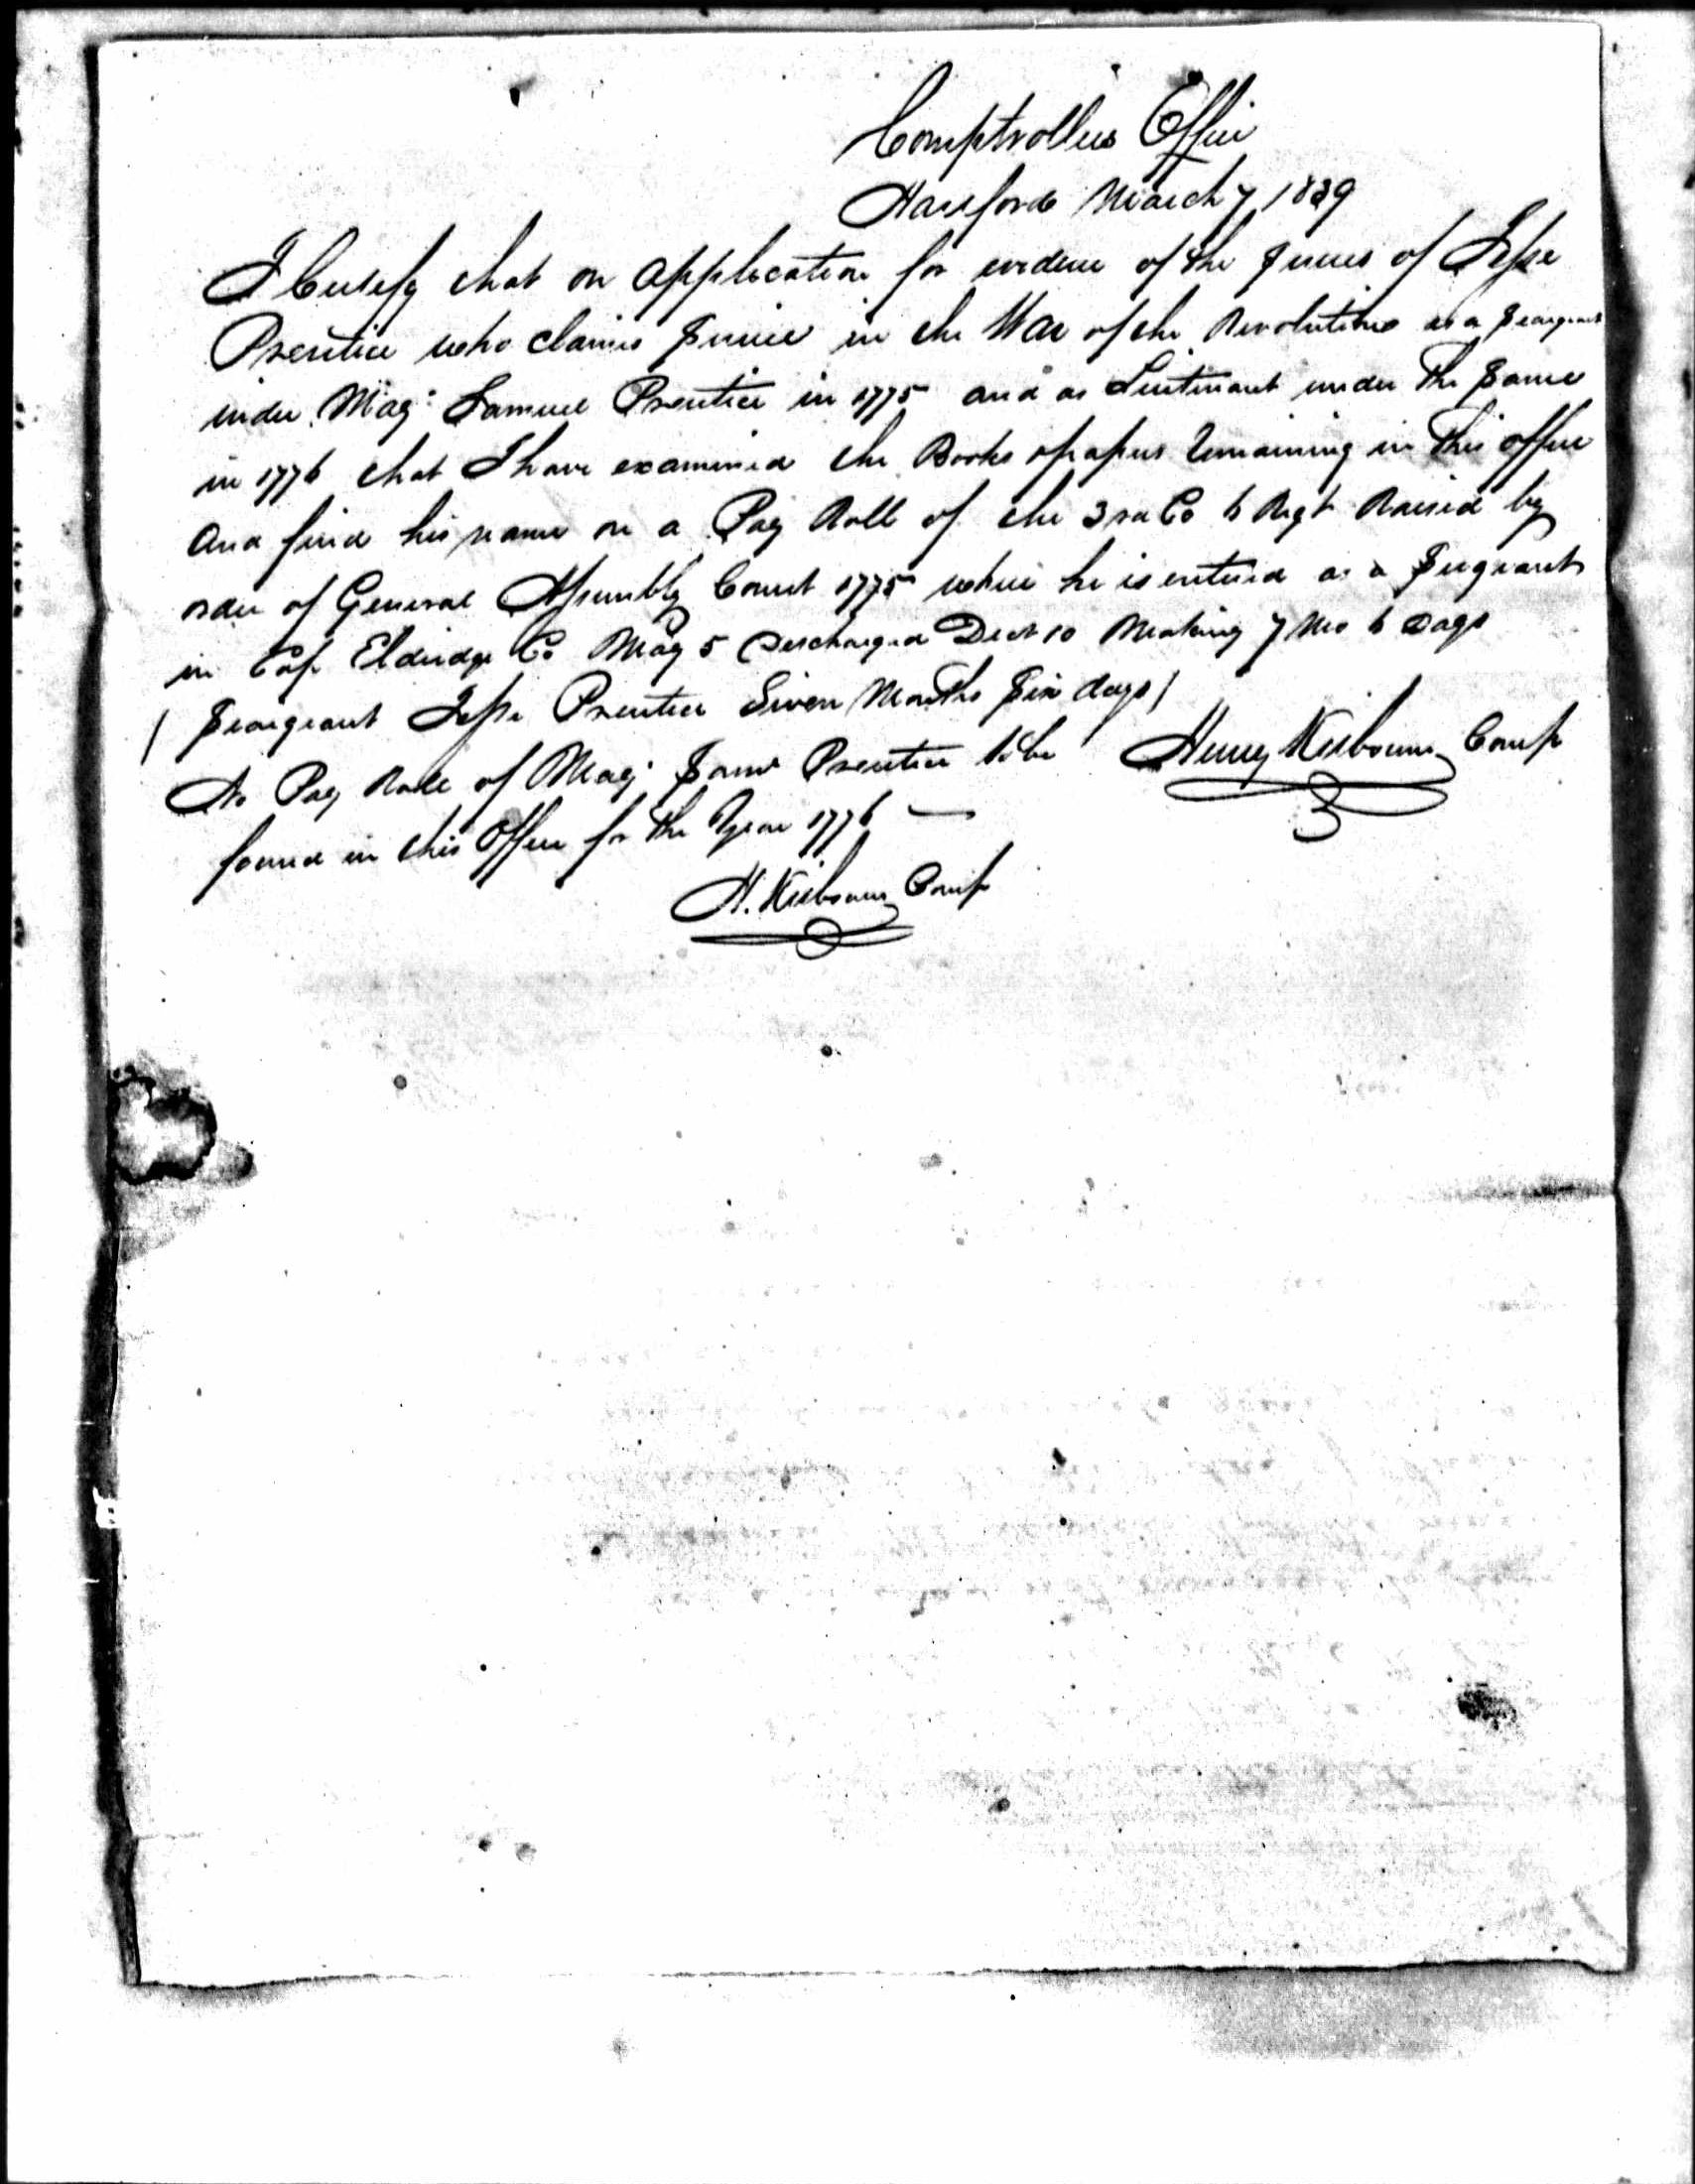 Comptrollers Office
Hartford March 7 1839
I Certify that on application for evidence of the services of Jesse
Prentice who claims service in the War of the Revolution as a Seargeant
under Maj: Samuel Prentice in 1775 and as Lieutenant under the same
in 1776 that I have examined the Books & papers Remaining in this office
and find his name on a Pay Roll of the 3rd Co 6 Regt Raised by
order of General Assembly Connt 1775 where he is entered as a Sergeant
in Cap Elderidge Co May 5 Discharged Decr 10 Making 7 Mo 6 Days
( Seargeant Jesse Prentice Seven Months Six days )
No Pay Role of Maj. Saml Prentice to be
Henry Kilbourn Comp
found in this Office for the Year 1776 —
H. Kilbourn Comp